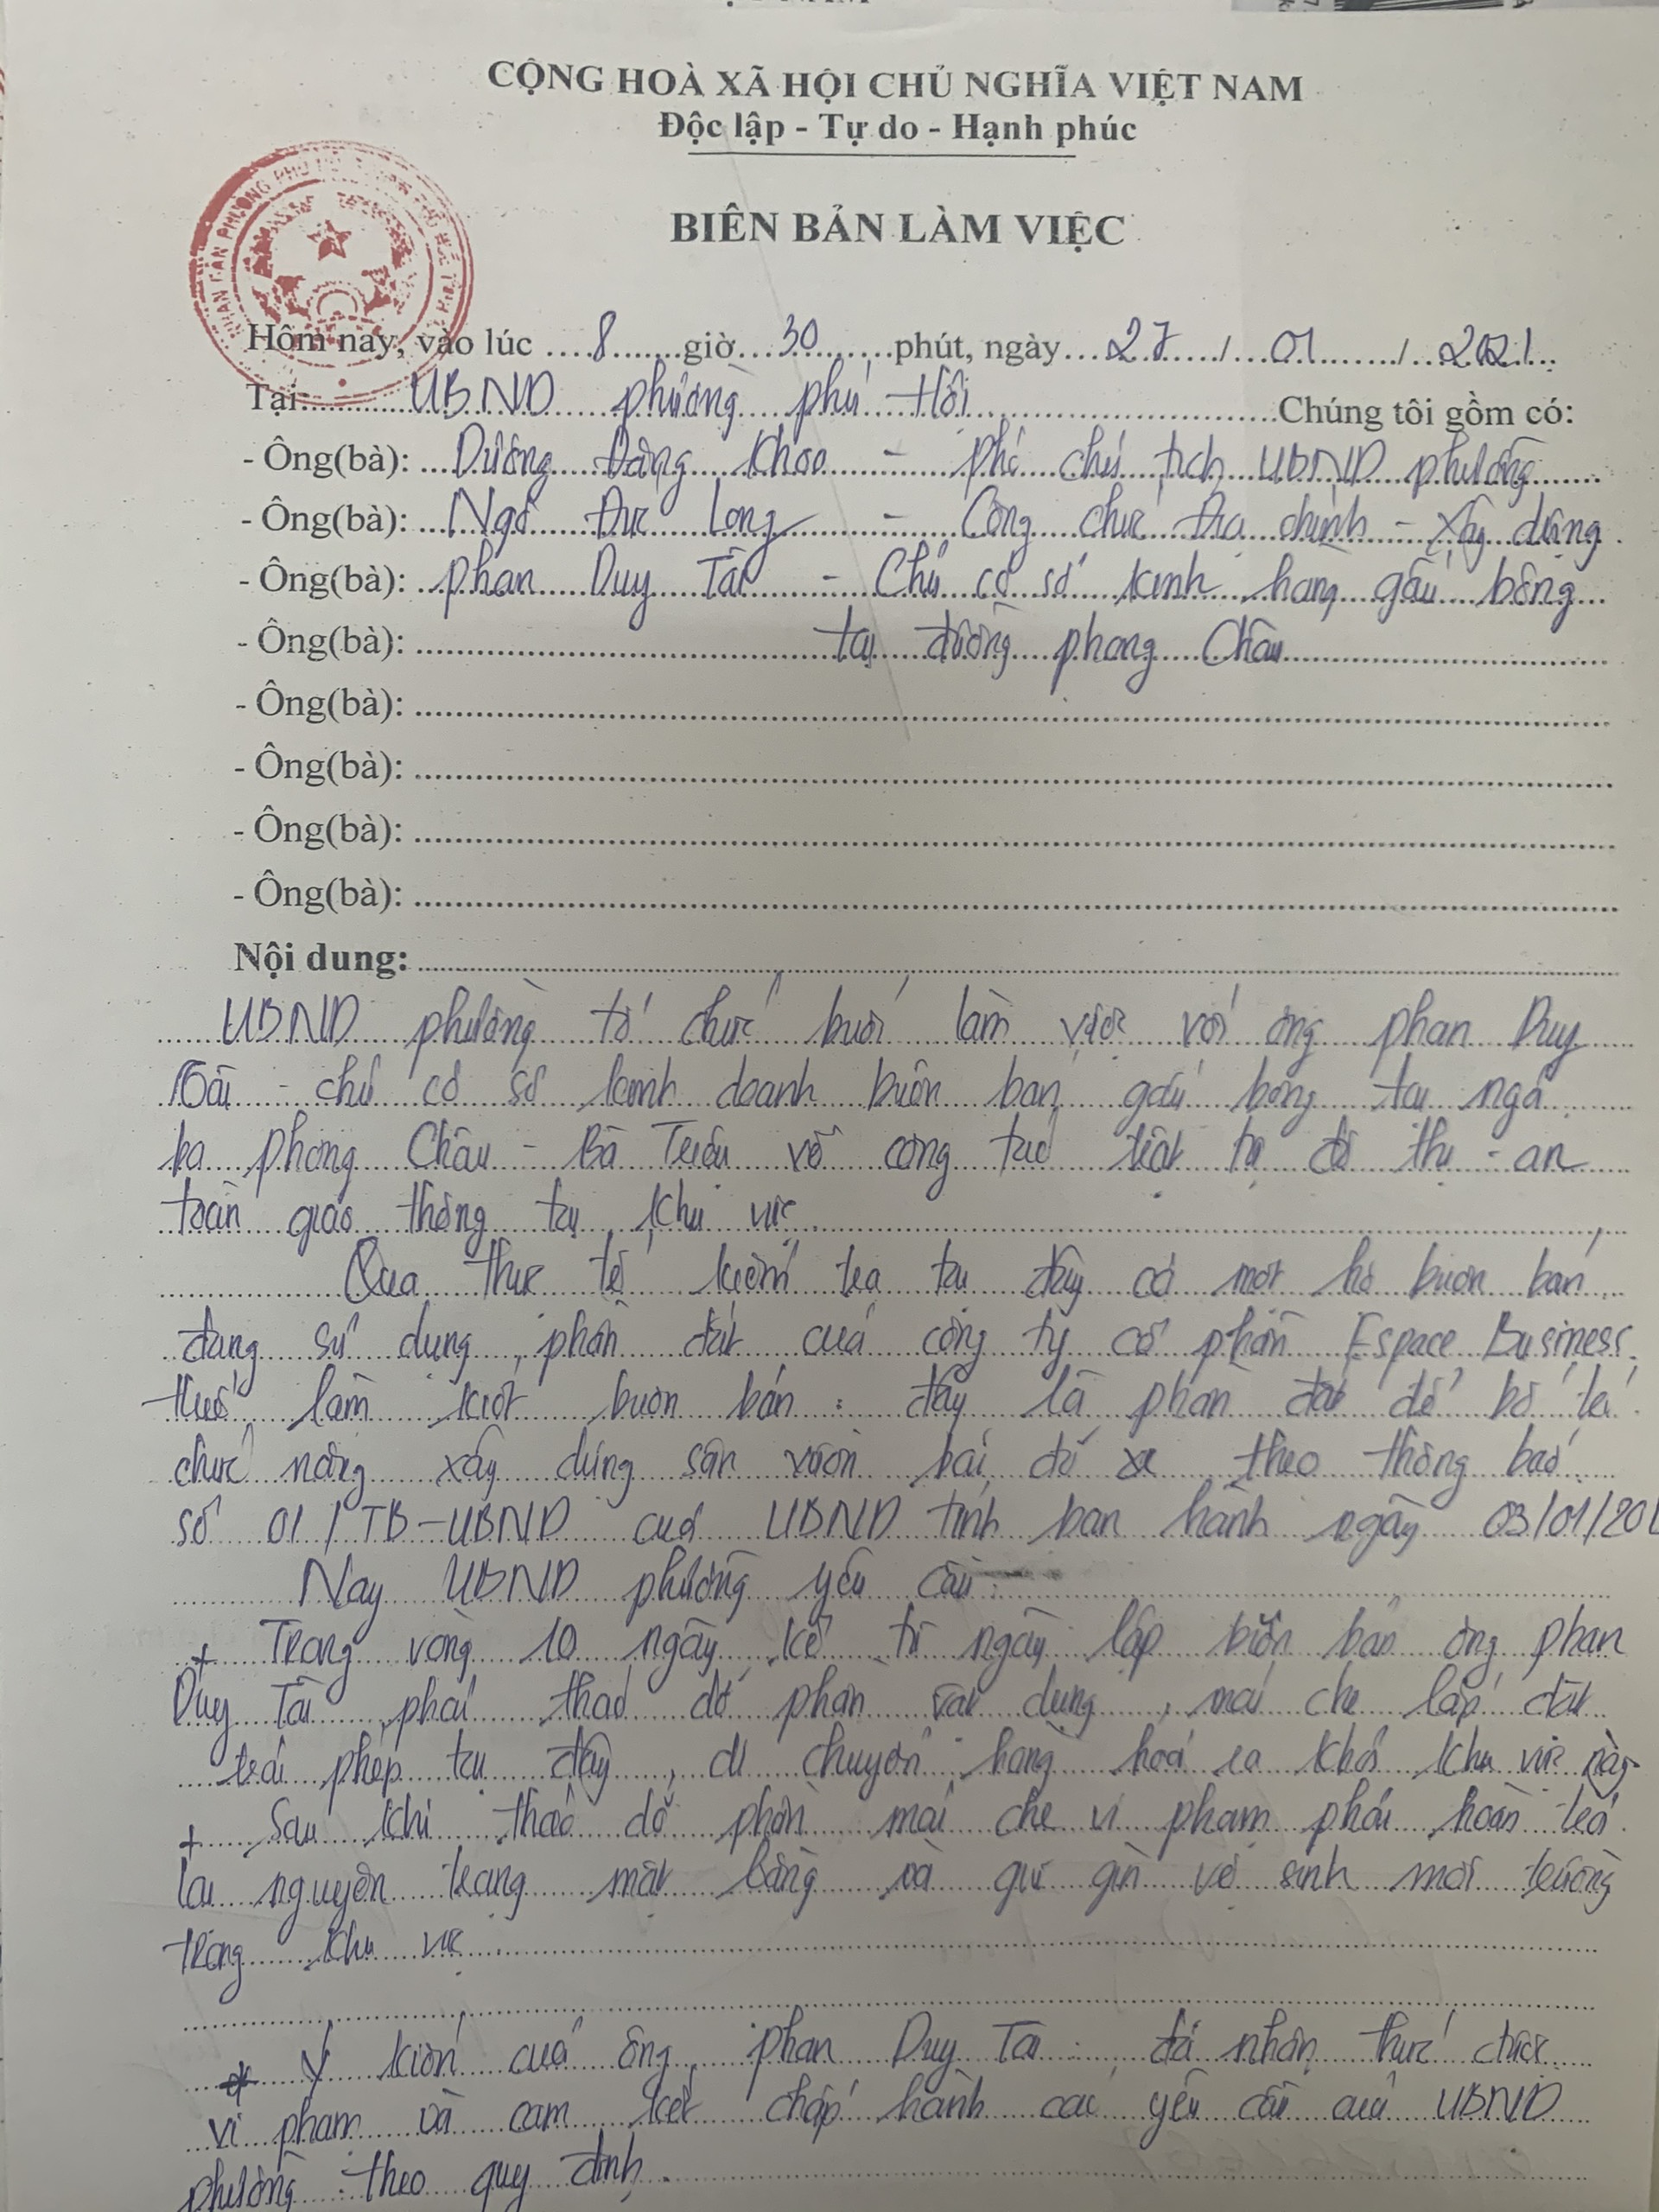 CỘNG HOÀ XÃ HỘI CHỦ NGHĨA VIỆT NAM
Độc lập - Tự do - Hạnh phúc
BIÊN BẢN LÀM VIỆC
Hôm nay, vào lúc 8 giờ 30 phút, ngày 27 / 01 / 2021
Tại: UBND phường Phú Hội Chúng tôi gồm có:
- Ông(bà): Dương Đăng Khoa - Phó chủ tịch UBND phường
- Ông(bà): Ngô Đức Long - Công chức Địa chính - Xây dựng
- Ông(bà): Phan Duy Tài - Chủ cơ sở kinh hàng gấu bông
- Ông(bà): tại đường Phong Châu
- Ông(bà):
- Ông(bà):
- Ông(bà):
- Ông(bà):
Nội dung:
UBND phường tổ chức buổi làm việc với ông Phan Duy
Tài - chủ cơ sở kinh doanh buôn bán gấu bông tại ngã
ba Phong Châu - Bà Triệu về công tác trật tự đô thị - an
toàn giao thông tại khu vực.
Qua thực tế kiểm tra tại đây có một hộ buôn bán
đang sử dụng phần đất của công ty cổ phần Espace Business
Huế làm kiốt buôn bán: đây là phần đất để bố trí
chức năng xây dựng sân vườn bãi đỗ xe theo thông báo
số 01/TB-UBND của UBND tỉnh ban hành ngày 03/01/20
Nay UBND phường yêu cầu:
+ Trong vòng 10 ngày kể từ ngày lập biên bản ông Phan
Duy Tài phải tháo dỡ phần vật dụng, mái che lắp đặt
trái phép tại đây, di chuyển hàng hoá ra khỏi khu vực này
+ Sau khi tháo dỡ phần mái che vi phạm phải hoàn trả
lại nguyên trạng mặt bằng và giữ gìn vệ sinh môi trường
trong khu vực.
* Ý kiến của ông Phan Duy Tài: đã nhận thức được
vi phạm và cam kết chấp hành các yêu cầu của UBND
phường theo quy định.